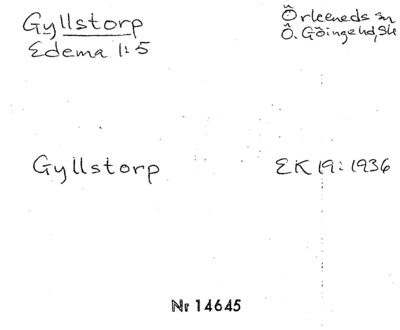 Gyllstorp
Örkeneds sn
Edema 1:5
Ö. Göinge hd, Sk
Gyllstorp
EK 19:1936
Nr 14645